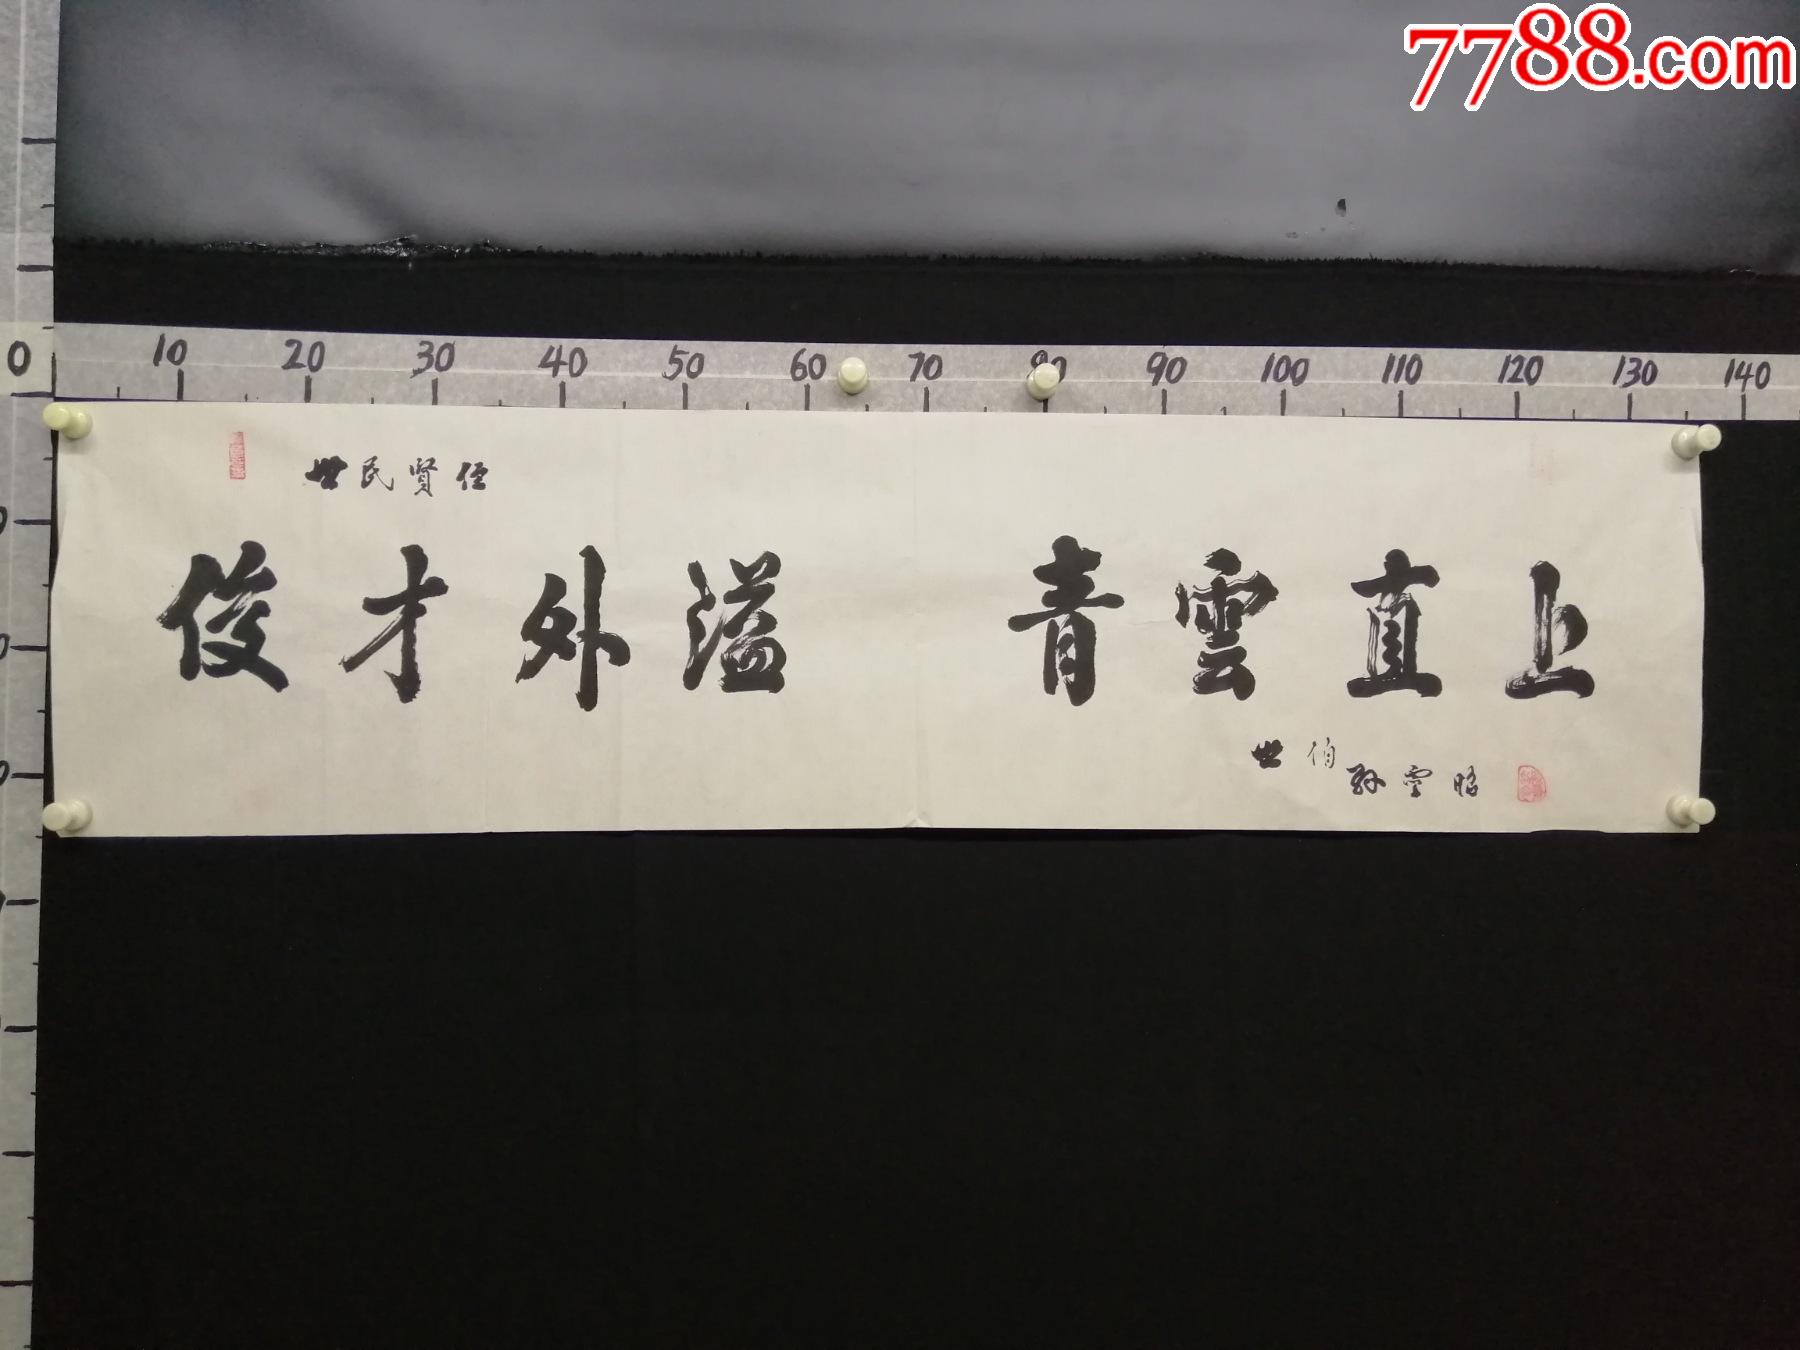 7788.com
0 10 20 30 40 50 60 70 80 90 100 110 120 130 140
世民賢侄
俊才外溢 青雲直上
世伯
孫雲昭